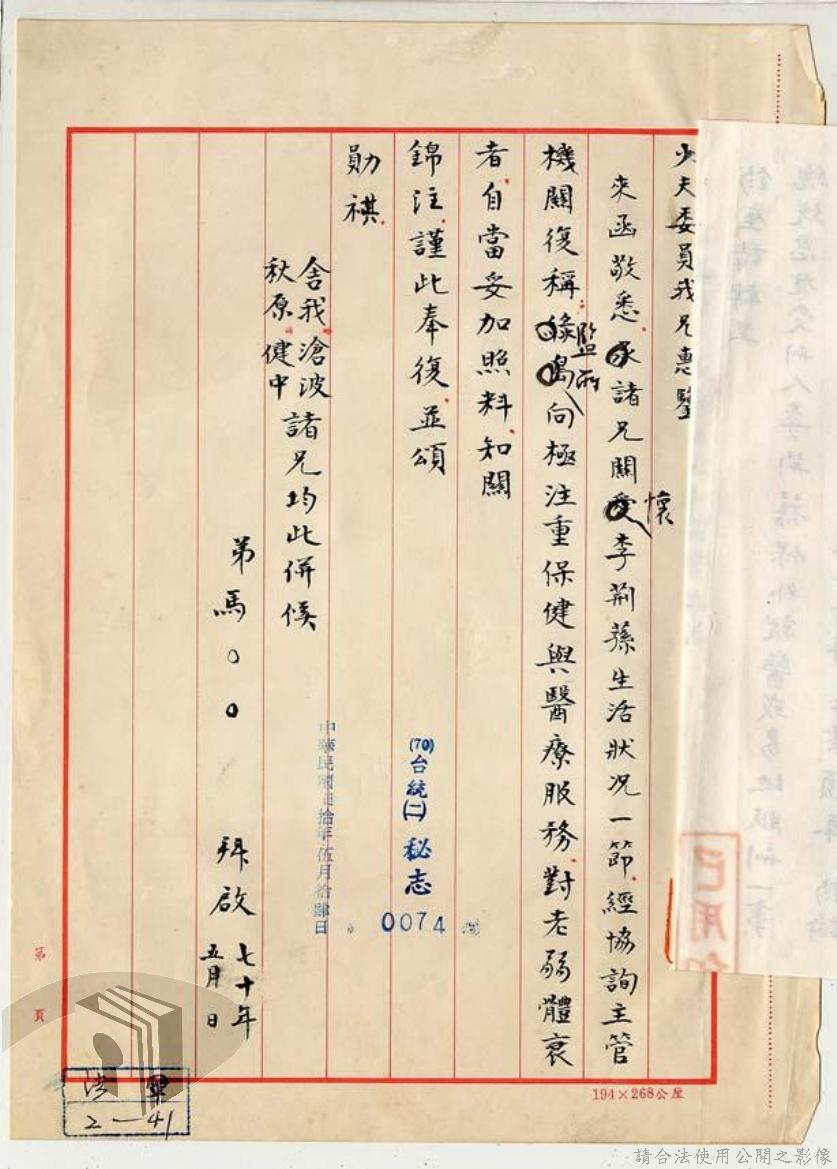 少夫委員我兄惠鑒
來函敬悉承諸兄關愛懷李荊蓀生活狀況一節經協詢主管
機關復稱綠島監所向極注重保健與醫療服務對老弱體衰
者自當妥加照料知關
錦注謹此奉復並頌
勛祺
舍我滄波
秋原健中
諸兄均此併候
弟馬〇〇 拜啟
七十年
五月 日
(70)台統(二)秘志 0074 號
中華民國柒拾年伍月拾肆日
第 頁
194×268公厘
已用
2—41
請合法使用公開之影像